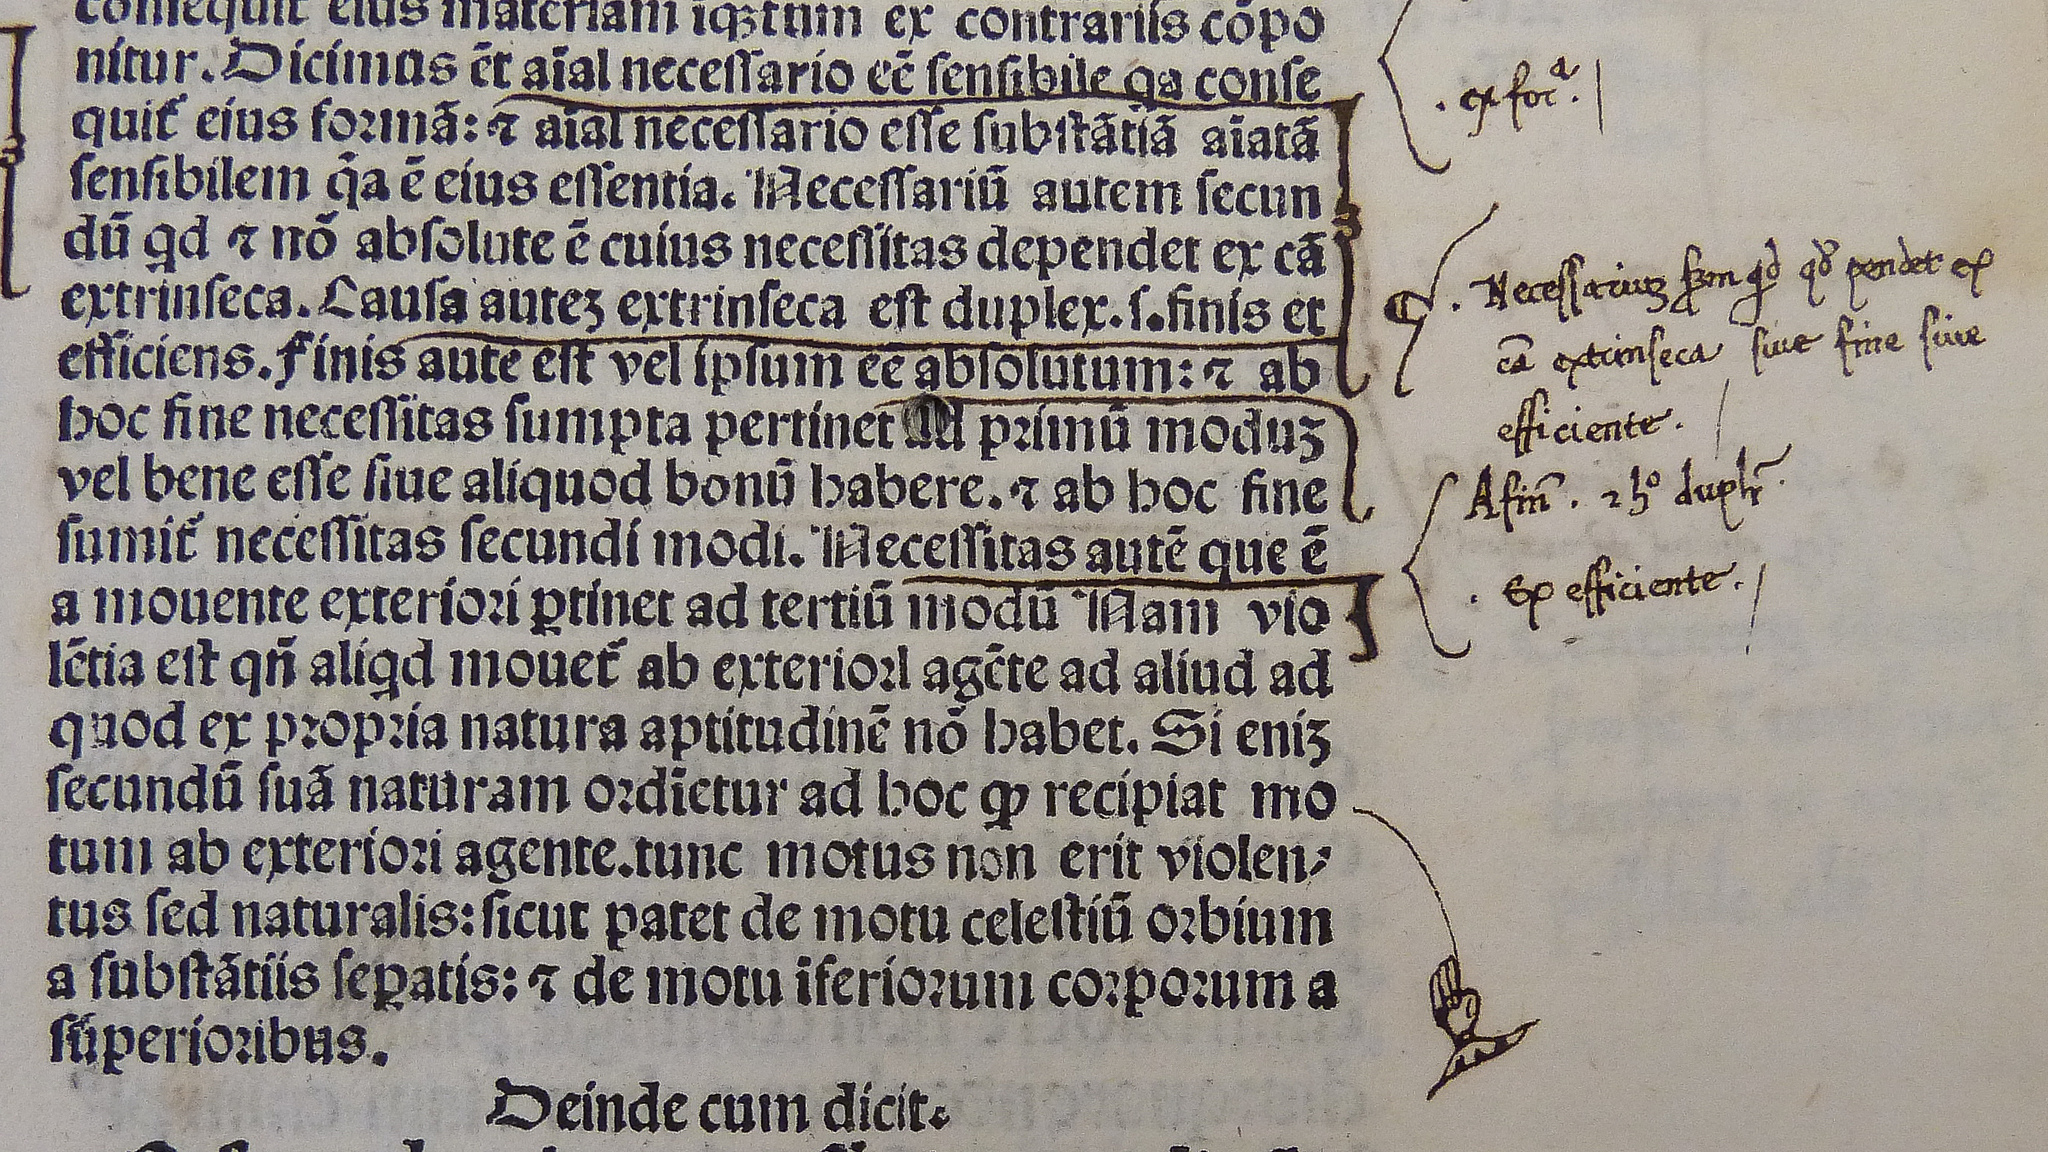 consequit eius materiam iqȝtum ex contrariis cōpo
nitur. Dicimus ēt aīal necessario eē sensibile qa conse
quit̄ eius formā: ⁊ aīal necessario esse substātiā aīatā
sensibilem q̄a ē eius essentia. Necessariū autem secun
dū qd ⁊ nō absolute ē cuius necessitas dependet ex cā
extrinseca. Causa auteȝ extrinseca est duplex. s. finis et
efficiens. Finis aute est vel ipsum eē absolutum: ⁊ ab
hoc fine necessitas sumpta pertinet ad primū moduȝ
vel bene esse siue aliquod bonū habere. ⁊ ab hoc fine
sumit̄ necessitas secundi modi. Necessitas autē que ē
a mouente exteriori ꝑtinet ad tertiū modū Nam vio
lētia est qñ aliqd mouet̄ ab exteriori agēte ad aliud ad
quod ex propria natura aptitudinē nō habet. Si eniȝ
secundū suā naturam ordīetur ad hoc ꝙ recipiat mo
tum ab exteriori agente. tunc motus non erit violen-
tus sed naturalis: sicut patet de motu celestiū orbium
a substātiis seꝑatis: ⁊ de motu īferiorum corporum a
superioribus.
Deinde cum dicit.
. ex forᵃ.
. Necessariuȝ scdm qd qd pendet ex
cā extrinseca siue fine siue
efficiente.
A fine . ⁊ hᵒ duplr̄.
. Ex efficiente.